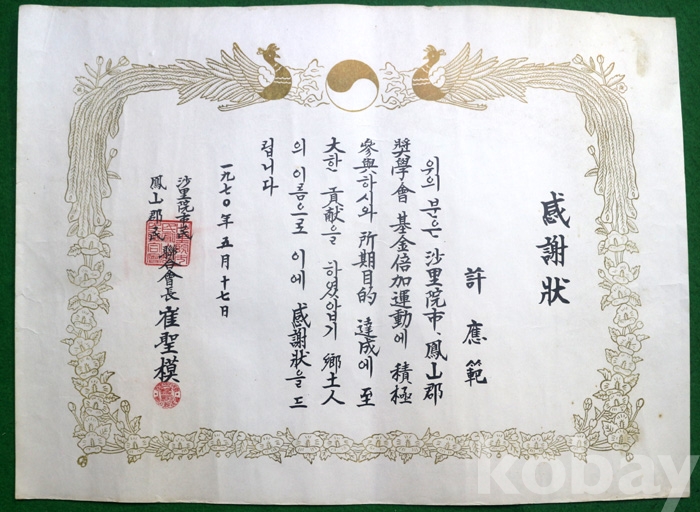 感謝狀
許應範
위의 분은 沙里院市、鳳山郡
奬學會 基金倍加運動에 積極
參與하시와 所期目的 達成에 至
大한 貢献을 하였압기 鄕土人
의 이름으로 이에 感謝狀을 드
립니다
一九七〇年 五月 十七日
沙里院市民
鳳山郡民
聯合會長 崔聖模
kobay